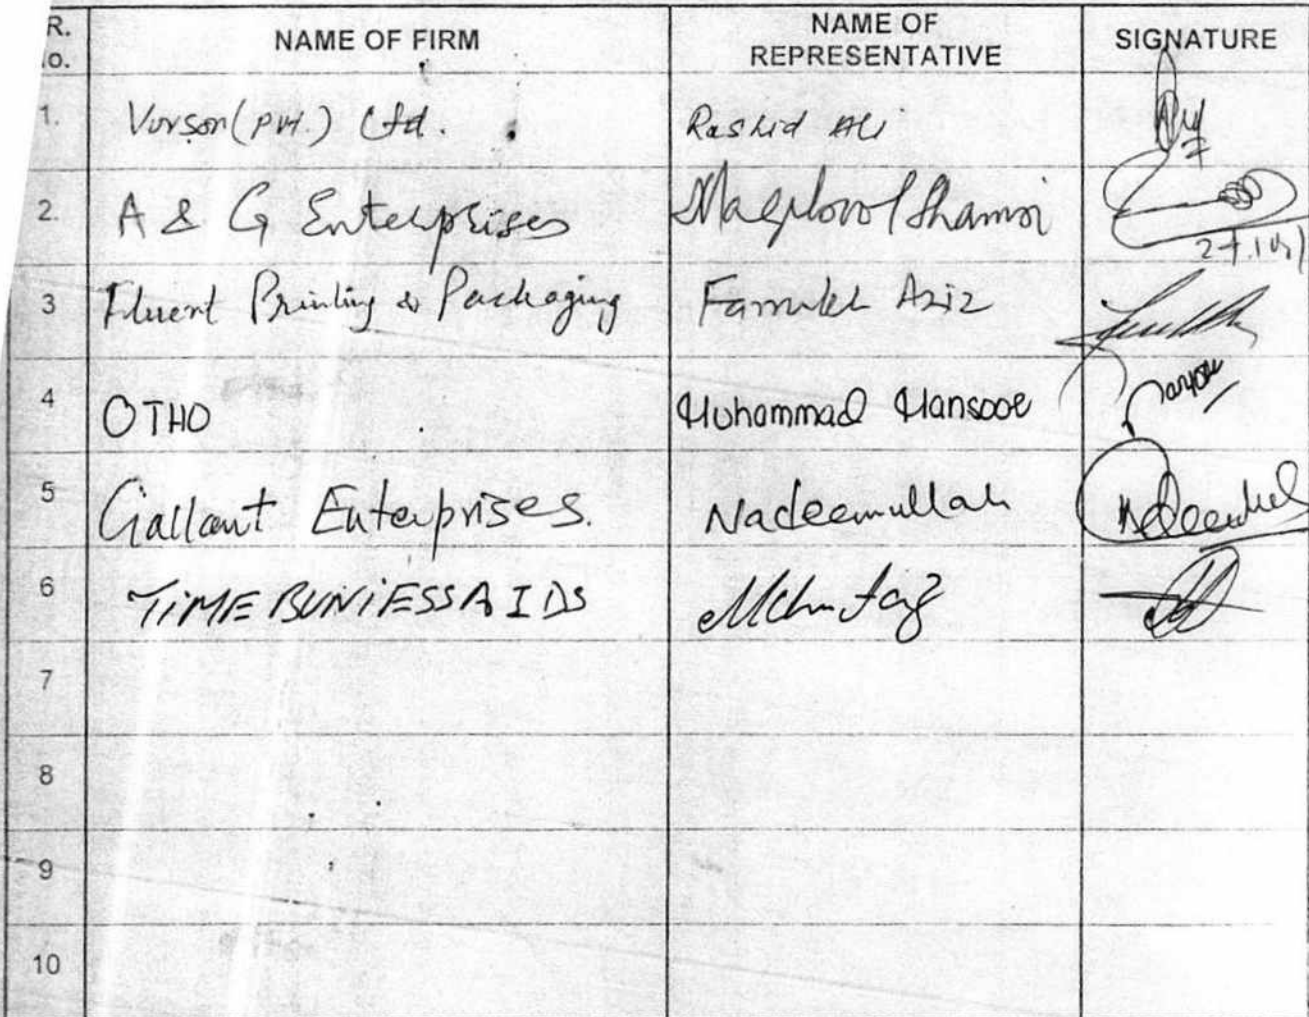 R. NAME OF FIRM NAME OF REPRESENTATIVE SIGNATURE
o.
1. Vorson (Pvt.) Ltd. Rashid Ali
2. A & G Enterprises
3 Fluent Printing & Packaging Farrukh Aziz
4 OTHO Muhammad Mansoor
5 Gallant Enterprises. Nadeemullah
6 TIME BUNIESS AIDS
7
8
9
10